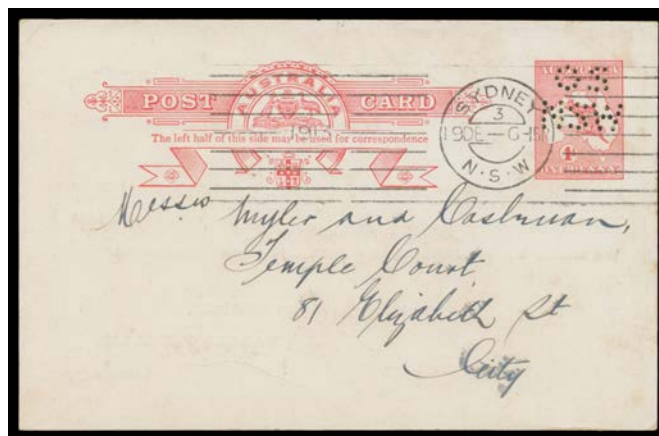 POST AUSTRALIA CARD
The left half of this side may be used for correspondence
1913
SYDNEY
3
19 DE
N.S.W
OS
NSW
AUSTRALIA
1d
ONE PENNY
Messrs Myler and
Temple Court
81 Elizabeth St
City